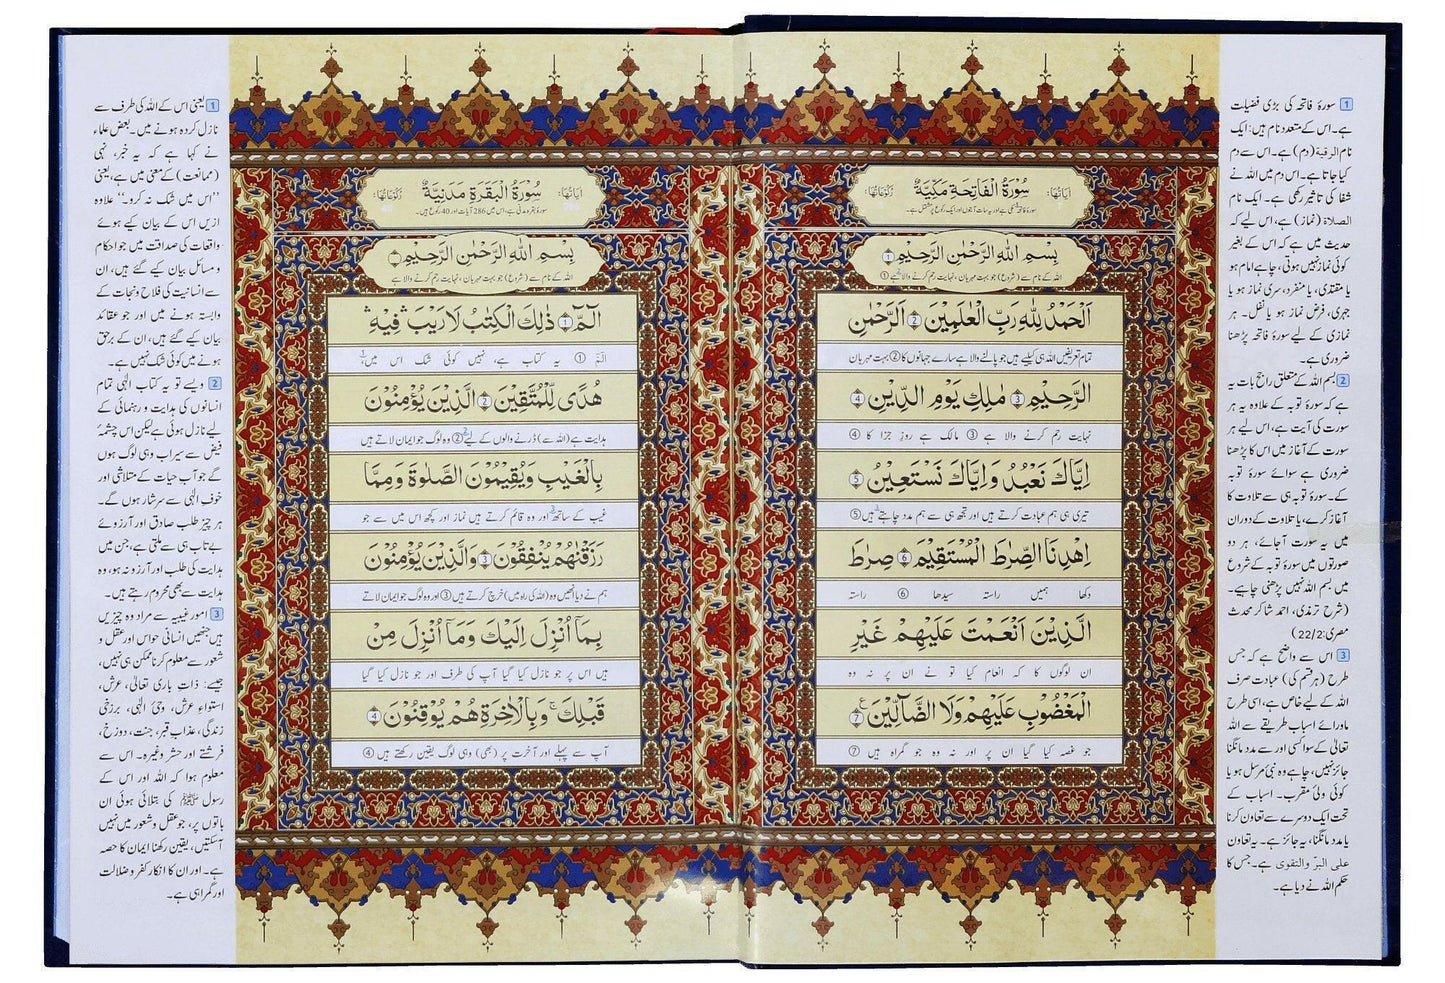 سُوْرَةُ الْفَاتِحَةِ مَكِّيَّةٌ
بِسْمِ اللهِ الرَّحْمٰنِ الرَّحِيْمِ 1
اللہ کے نام سے (شروع) جو بہت مہربان، نہایت رحم کرنے والا ہے ①
اَلْحَمْدُ لِلّٰهِ رَبِّ الْعٰلَمِيْنَ 2 الرَّحْمٰنِ
تمام تعریفیں اللہ ہی کیلیے ہیں جو پالنے والا ہے سارے جہانوں کا ② بہت مہربان
الرَّحِيْمِ 3 مٰلِكِ يَوْمِ الدِّيْنِ 4
نہایت رحم کرنے والا ہے ③ مالک ہے روز جزا کا ④
اِيَّاكَ نَعْبُدُ وَاِيَّاكَ نَسْتَعِيْنُ 5
تیری ہی ہم عبادت کرتے ہیں اور تجھ ہی سے ہم مدد چاہتے ہیں ⑤
اِهْدِنَا الصِّرَاطَ الْمُسْتَقِيْمَ 6 صِرَاطَ
دکھا ہمیں راستہ سیدھا ⑥ راستہ
الَّذِيْنَ اَنْعَمْتَ عَلَيْهِمْ غَيْرِ
ان لوگوں کا کہ انعام کیا تو نے ان پر نہ وہ
الْمَغْضُوْبِ عَلَيْهِمْ وَلَا الضَّآلِّيْنَ 7
جو غصہ کیا گیا ان پر اور نہ وہ جو گمراہ ہیں ⑦
1 سورۂ فاتحہ کی بڑی فضیلت
ہے۔ اس کے متعدد نام ہیں: ایک
نام الرقية (دم) ہے۔ اس سے دم
کیا جاتا ہے۔ اس دم میں اللہ نے
شفا کی تاثیر رکھی ہے۔ ایک نام
الصلاة (نماز) ہے، اس لیے کہ
حدیث میں ہے کہ اس کے بغیر
کوئی نماز نہیں ہوتی، چاہے امام ہو
یا مقتدی، یا منفرد، سری نماز ہو یا
جہری، فرض نماز ہو یا نفل۔ ہر
نمازی کے لیے سورۂ فاتحہ پڑھنا
ضروری ہے۔
2 بسم اللہ کے متعلق راجح بات یہ
ہے کہ سورۂ توبہ کے علاوہ یہ ہر
سورت کی آیت ہے، اس لیے ہر
سورت کے آغاز میں اس کا پڑھنا
ضروری ہے سوائے سورۂ توبہ
کے۔ سورۂ توبہ ہی سے تلاوت کا
آغاز کرے، یا تلاوت کے دوران
میں یہ سورت آجائے، ہر دو
صورتوں میں سورۂ توبہ کے شروع
میں بسم اللہ نہیں پڑھنی چاہیے۔
(شرح ترمذی، احمد شاکر محدث
مصری: 22/2)
3 اس سے واضح ہے کہ جس
طرح (ہر قسم کی) عبادت صرف
اللہ کے لیے خاص ہے، اسی طرح
ماورائے اسباب طریقے سے اللہ
تعالیٰ کے سوا کسی اور سے مدد مانگنا
جائز نہیں، چاہے وہ نبیٔ مرسل ہو یا
کوئی ولیٔ مقرب۔ اسباب کے
تحت ایک دوسرے سے تعاون کرنا
یا مدد مانگنا، یہ جائز ہے۔ یہ تعاون
على البرّ والتقوى ہے۔ جس کا
حکم اللہ نے دیا ہے۔
سُوْرَةُ الْبَقَرَةِ مَدَنِيَّةٌ
سورۂ بقرہ مدنی ہے، اس میں 286 آیات اور 40 رکوع ہیں۔
بِسْمِ اللهِ الرَّحْمٰنِ الرَّحِيْمِ
اللہ کے نام سے (شروع) جو بہت مہربان، نہایت رحم کرنے والا ہے
الٓمّٓ 1 ذٰلِكَ الْكِتٰبُ لَا رَيْبَ فِيْهِ
الٓمٓ ① یہ کتاب ہے، نہیں کوئی شک اس میں،
هُدًى لِّلْمُتَّقِيْنَ 2 الَّذِيْنَ يُؤْمِنُوْنَ
ہدایت ہے (اللہ سے) ڈرنے والوں کے لیے ② وہ لوگ جو ایمان لاتے ہیں
بِالْغَيْبِ وَيُقِيْمُوْنَ الصَّلٰوةَ وَمِمَّا
غیب کے ساتھ اور وہ قائم کرتے ہیں نماز اور کچھ اس میں سے جو
رَزَقْنٰهُمْ يُنْفِقُوْنَ 3 وَالَّذِيْنَ يُؤْمِنُوْنَ
ہم نے دیا انھیں وہ (اللہ کی راہ میں) خرچ کرتے ہیں ③ اور وہ لوگ جو ایمان لاتے
بِمَآ اُنْزِلَ اِلَيْكَ وَمَآ اُنْزِلَ مِنْ
ہیں اس پر جو نازل کیا گیا آپ کی طرف اور جو نازل کیا گیا
قَبْلِكَ وَبِالْاٰخِرَةِ هُمْ يُوْقِنُوْنَ 4
آپ سے پہلے اور آخرت پر (بھی) وہی لوگ یقین رکھتے ہیں ④
1 یعنی اس کے اللہ کی طرف سے
نازل کردہ ہونے میں۔ بعض علماء
نے کہا ہے کہ یہ خبر، نہی
(ممانعت) کے معنی میں ہے، یعنی
’’اس میں شک نہ کرو۔‘‘ علاوہ
ازیں اس کے بیان کیے ہوئے
واقعات کی صداقت میں جو احکام
و مسائل بیان کیے گئے ہیں، ان
سے انسانیت کی فلاح و نجات کے
وابستہ ہونے میں اور جو عقائد
بیان کیے گئے ہیں، ان کے برحق
ہونے میں کوئی شک نہیں ہے۔
2 ویسے تو یہ کتاب الٰہی تمام
انسانوں کی ہدایت و رہنمائی کے
لیے نازل ہوئی ہے لیکن اس چشمۂ
فیض سے سیراب وہی لوگ ہوں
گے جو آب حیات کے متلاشی اور
خوفِ الٰہی سے سرشار ہوں گے۔
ہر چیز طلب صادق اور آرزوئے
بے تاب ہی سے ملتی ہے، جن میں
ہدایت کی طلب اور آرزو نہ ہو، وہ
ہدایت سے بھی محروم رہتے ہیں۔
3 امور غیبیہ سے مراد وہ چیزیں
ہیں جنھیں انسانی حواس اور عقل و
شعور سے معلوم کرنا ممکن ہی نہیں،
جیسے: ذات باری تعالیٰ، عرش،
استواء عرش، وحیٔ الٰہی، برزخی
زندگی، عذاب قبر، جنت، دوزخ،
فرشتے اور حشر وغیرہ۔ اس سے
معلوم ہوا کہ اللہ اور اس کے
رسول ﷺ کی بتلائی ہوئی ان
باتوں پر، جو عقل و شعور میں نہیں
آسکتیں، یقین رکھنا ایمان کا حصہ
ہے۔ اور ان کا انکار کفر و ضلالت
اور گمراہی ہے۔